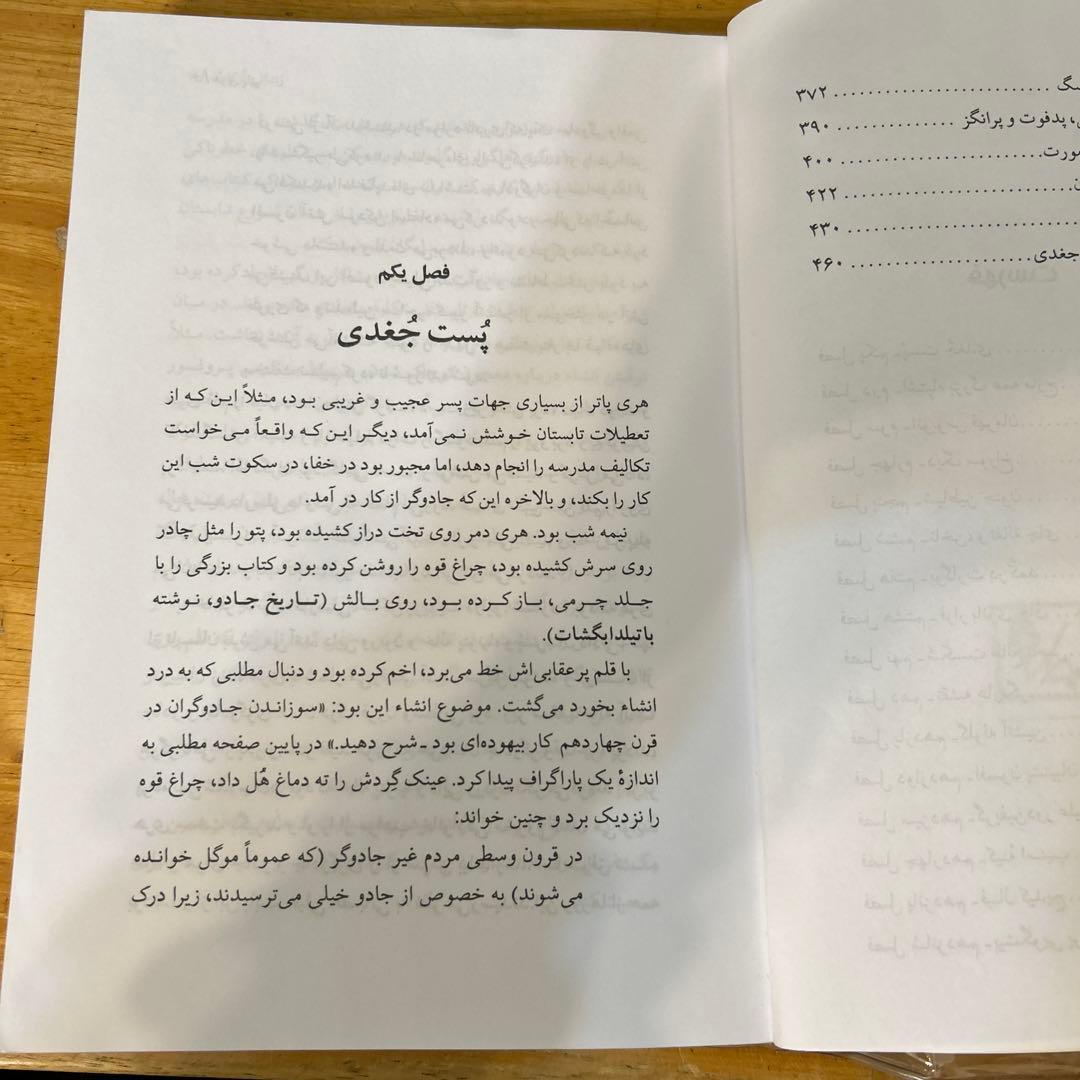 سگ ......................... ۳۷۲
، پدفوت و پرانگز .............. ۳۹۰
........................ ۴۰۰
........................... ۴۲۲
........................... ۴۳۰
جغدی ..................... ۴۶۰
فصل یکم
پُست جُغدی
هری پاتر از بسیاری جهات پسر عجیب و غریبی بود، مثلاً این که از
تعطیلات تابستان خوشش نمی‌آمد، دیگر این که واقعاً می‌خواست
تکالیف مدرسه را انجام دهد، اما مجبور بود در خفا، در سکوت شب این
کار را بکند، و بالاخره این که جادوگر از کار در آمد.
نیمه شب بود. هری دمر روی تخت دراز کشیده بود، پتو را مثل چادر
روی سرش کشیده بود، چراغ قوه را روشن کرده بود و کتاب بزرگی را با
جلد چرمی، باز کرده بود، روی بالش (تاریخ جادو، نوشته
باتیلدابگشات).
با قلم پر عقابی‌اش خط می‌برد، اخم کرده بود و دنبال مطلبی که به درد
انشاء بخورد می‌گشت. موضوع انشاء این بود: «سوزاندن جادوگران در
قرن چهاردهم کار بیهوده‌ای بود ـ شرح دهید.» در پایین صفحه مطلبی به
اندازهٔ یک پاراگراف پیدا کرد. عینک گِردش را ته دماغ هُل داد، چراغ قوه
را نزدیک برد و چنین خواند:
در قرون وسطی مردم غیر جادوگر (که عموماً موگل خوانده
می‌شوند) به خصوص از جادو خیلی می‌ترسیدند، زیرا درک